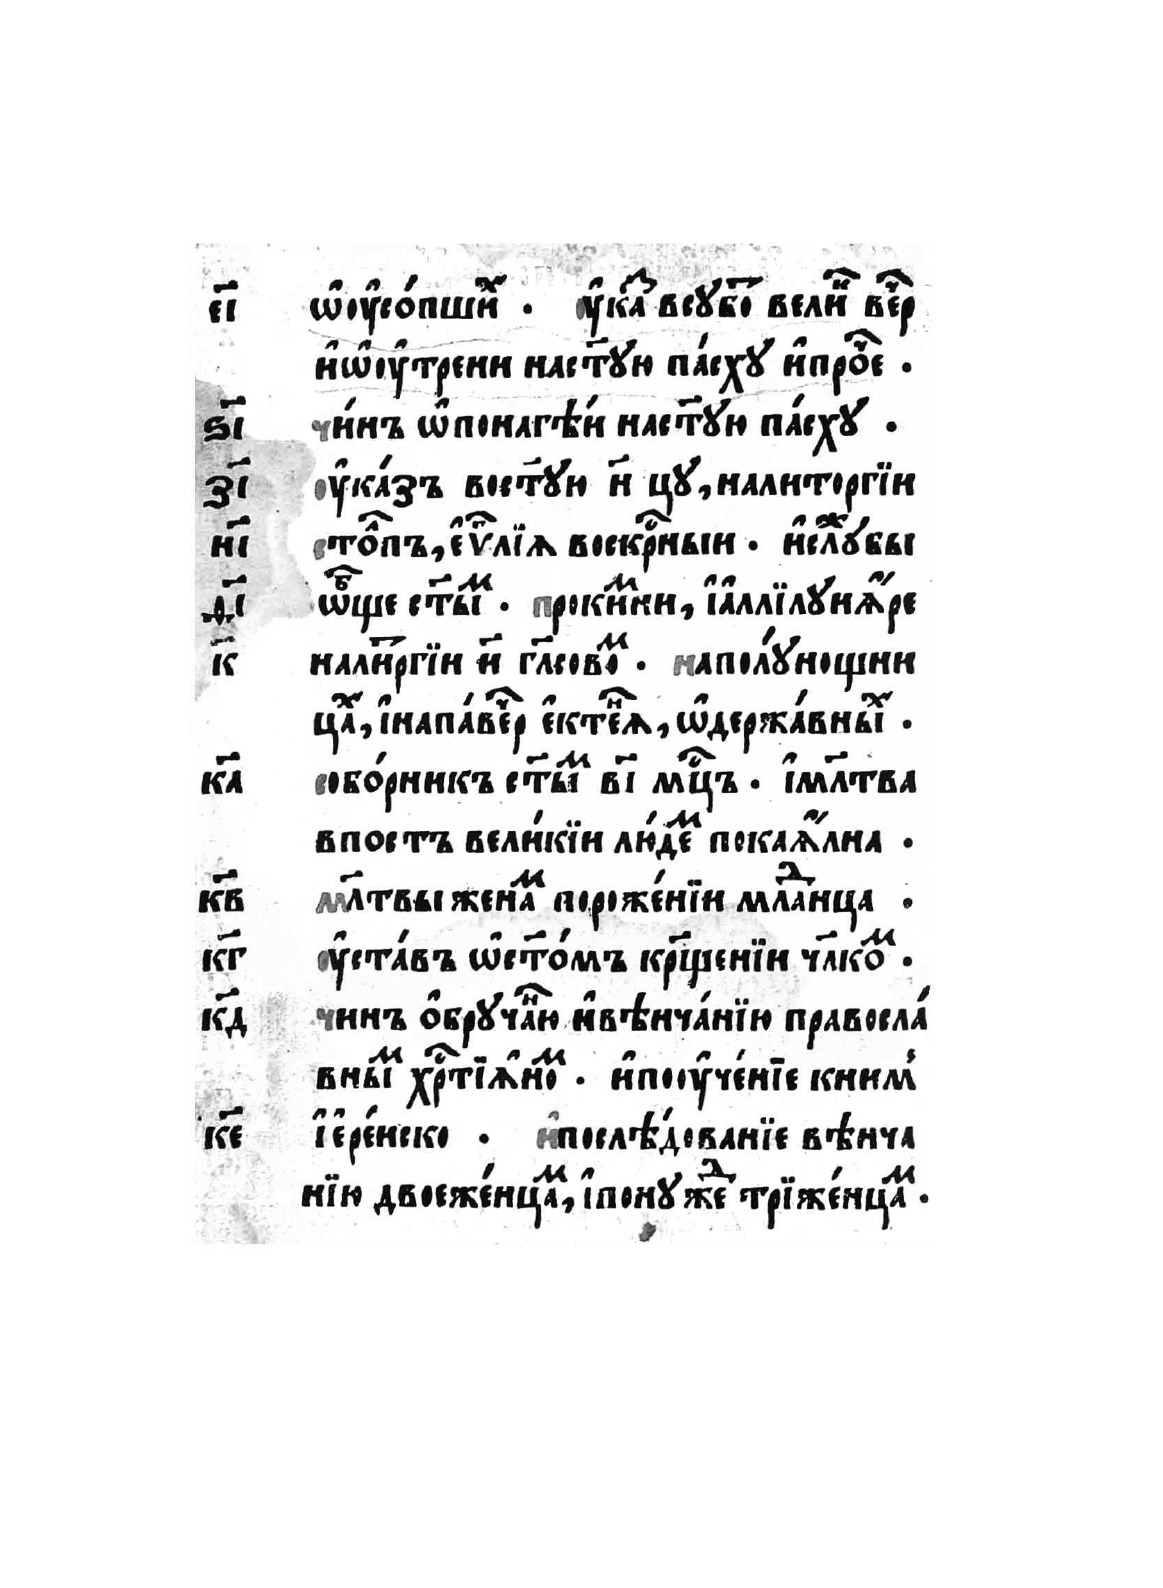 е҃і ѡ҆ѹ҆со́пшиⷯ · ѹ҆каⷥ́ всꙋбо҃ велиⷦ҇ веⷱ҇р
и҆ѡ҆ѹ҆трени наст҃ꙋю па́схꙋ и҆проⷱ҇е ·
ѕ҃і чи́нъ ѡ҆понагѣи́ наст҃ꙋю па́схꙋ ·
з҃і ѹ҆ка́зъ вост҃ꙋю н҃и цꙋ, налиторгїи
н҃і стоⷧ҇пъ, є҆ѵⷢ҇лїѧ воскрⷭ҇ныи · и҆слꙋⷤбы
ѳ҃і ѡ҆бⷺще ст҃ыⷨ · прокиⷨни, і҆а҆ллїлꙋиѧ҆́ре
к҃ налит҃ргїи н҃и гл҃совоⷨ · напол́ꙋнощни
цаⷯ, і҆напа́веⷱ҇р є҆ктеⷩ҇ѧ, ѡ҆держа́вныⷯ ·
к҃а собо́рникъ ст҃ыⷨ в҃і мцⷭ҇ъ · і҆мл҃тва
впостъ вели́кїи лю́деⷨ покаѧ҆́лна ·
к҃в мл҃твы женаⷨ пороже́нїи млаⷣнца ·
к҃г ѹ҆ста́въ ѡ҆ст҃о́мъ кр҃щенїи чл҃коⷨ ·
к҃д чинъ о҆брꙋчаⷩ҇ю и҆вѣнча́нїю правосла́
вныⷨ хрⷭ҇тїѧ҆ноⷨ · и҆поѹ҆че́нїе книмⷨ
к҃е і҆є҆ре́йско · и҆послѣ́дованїе вѣнча
нїю двоеже́нцаⷨ, і҆понꙋжеⷣ трїже́нцаⷨ ·